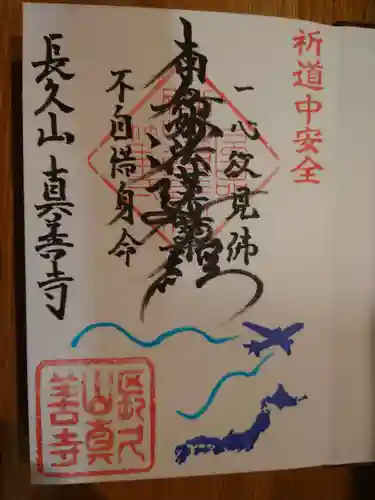 祈道中安全
一心欲見佛
南無妙法蓮華経
不自惜身命
長久山 真善寺
長久
山真
善寺